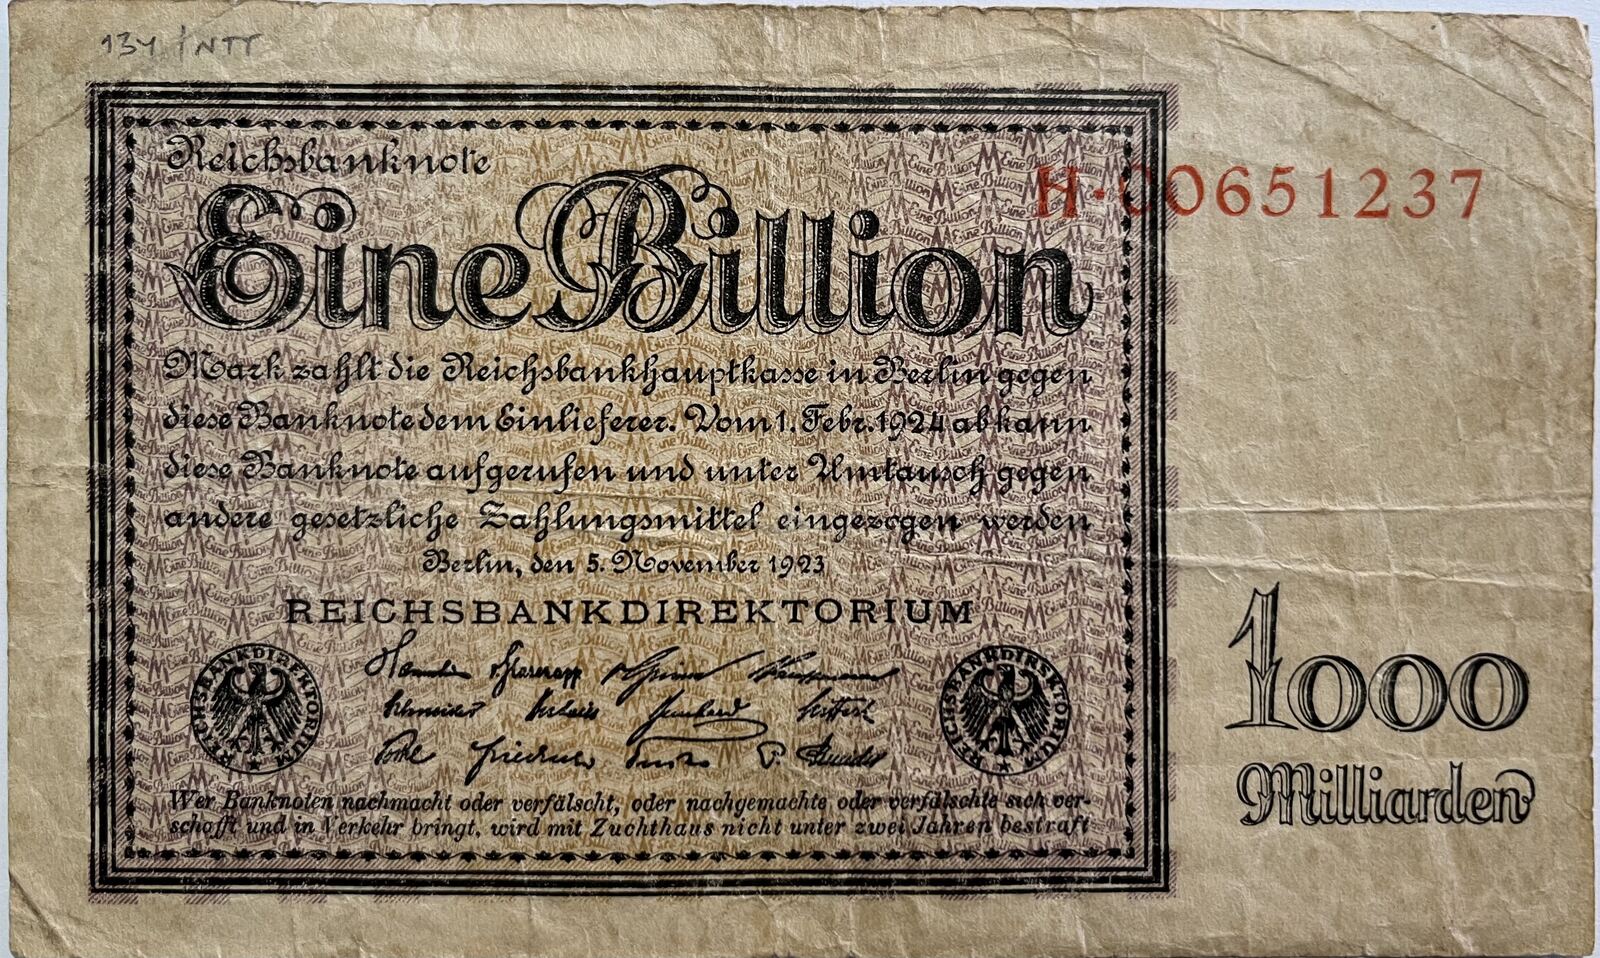 134
Reichsbanknote
H·00651237
Eine Billion
Mark zahlt die Reichsbankhauptkasse in Berlin gegen
diese Banknote dem Einlieferer. Vom 1. Febr. 1924 ab kann
diese Banknote aufgerufen und unter Umtausch gegen
andere gesetzliche Zahlungsmittel eingezogen werden
Berlin, den 5. November 1923
REICHSBANKDIREKTORIUM
REICHSBANKDIREKTORIUM
REICHSBANKDIREKTORIUM
Wer Banknoten nachmacht oder verfälscht, oder nachgemachte oder verfälschte sich ver-
schafft und in Verkehr bringt, wird mit Zuchthaus nicht unter zwei Jahren bestraft
1000
Milliarden